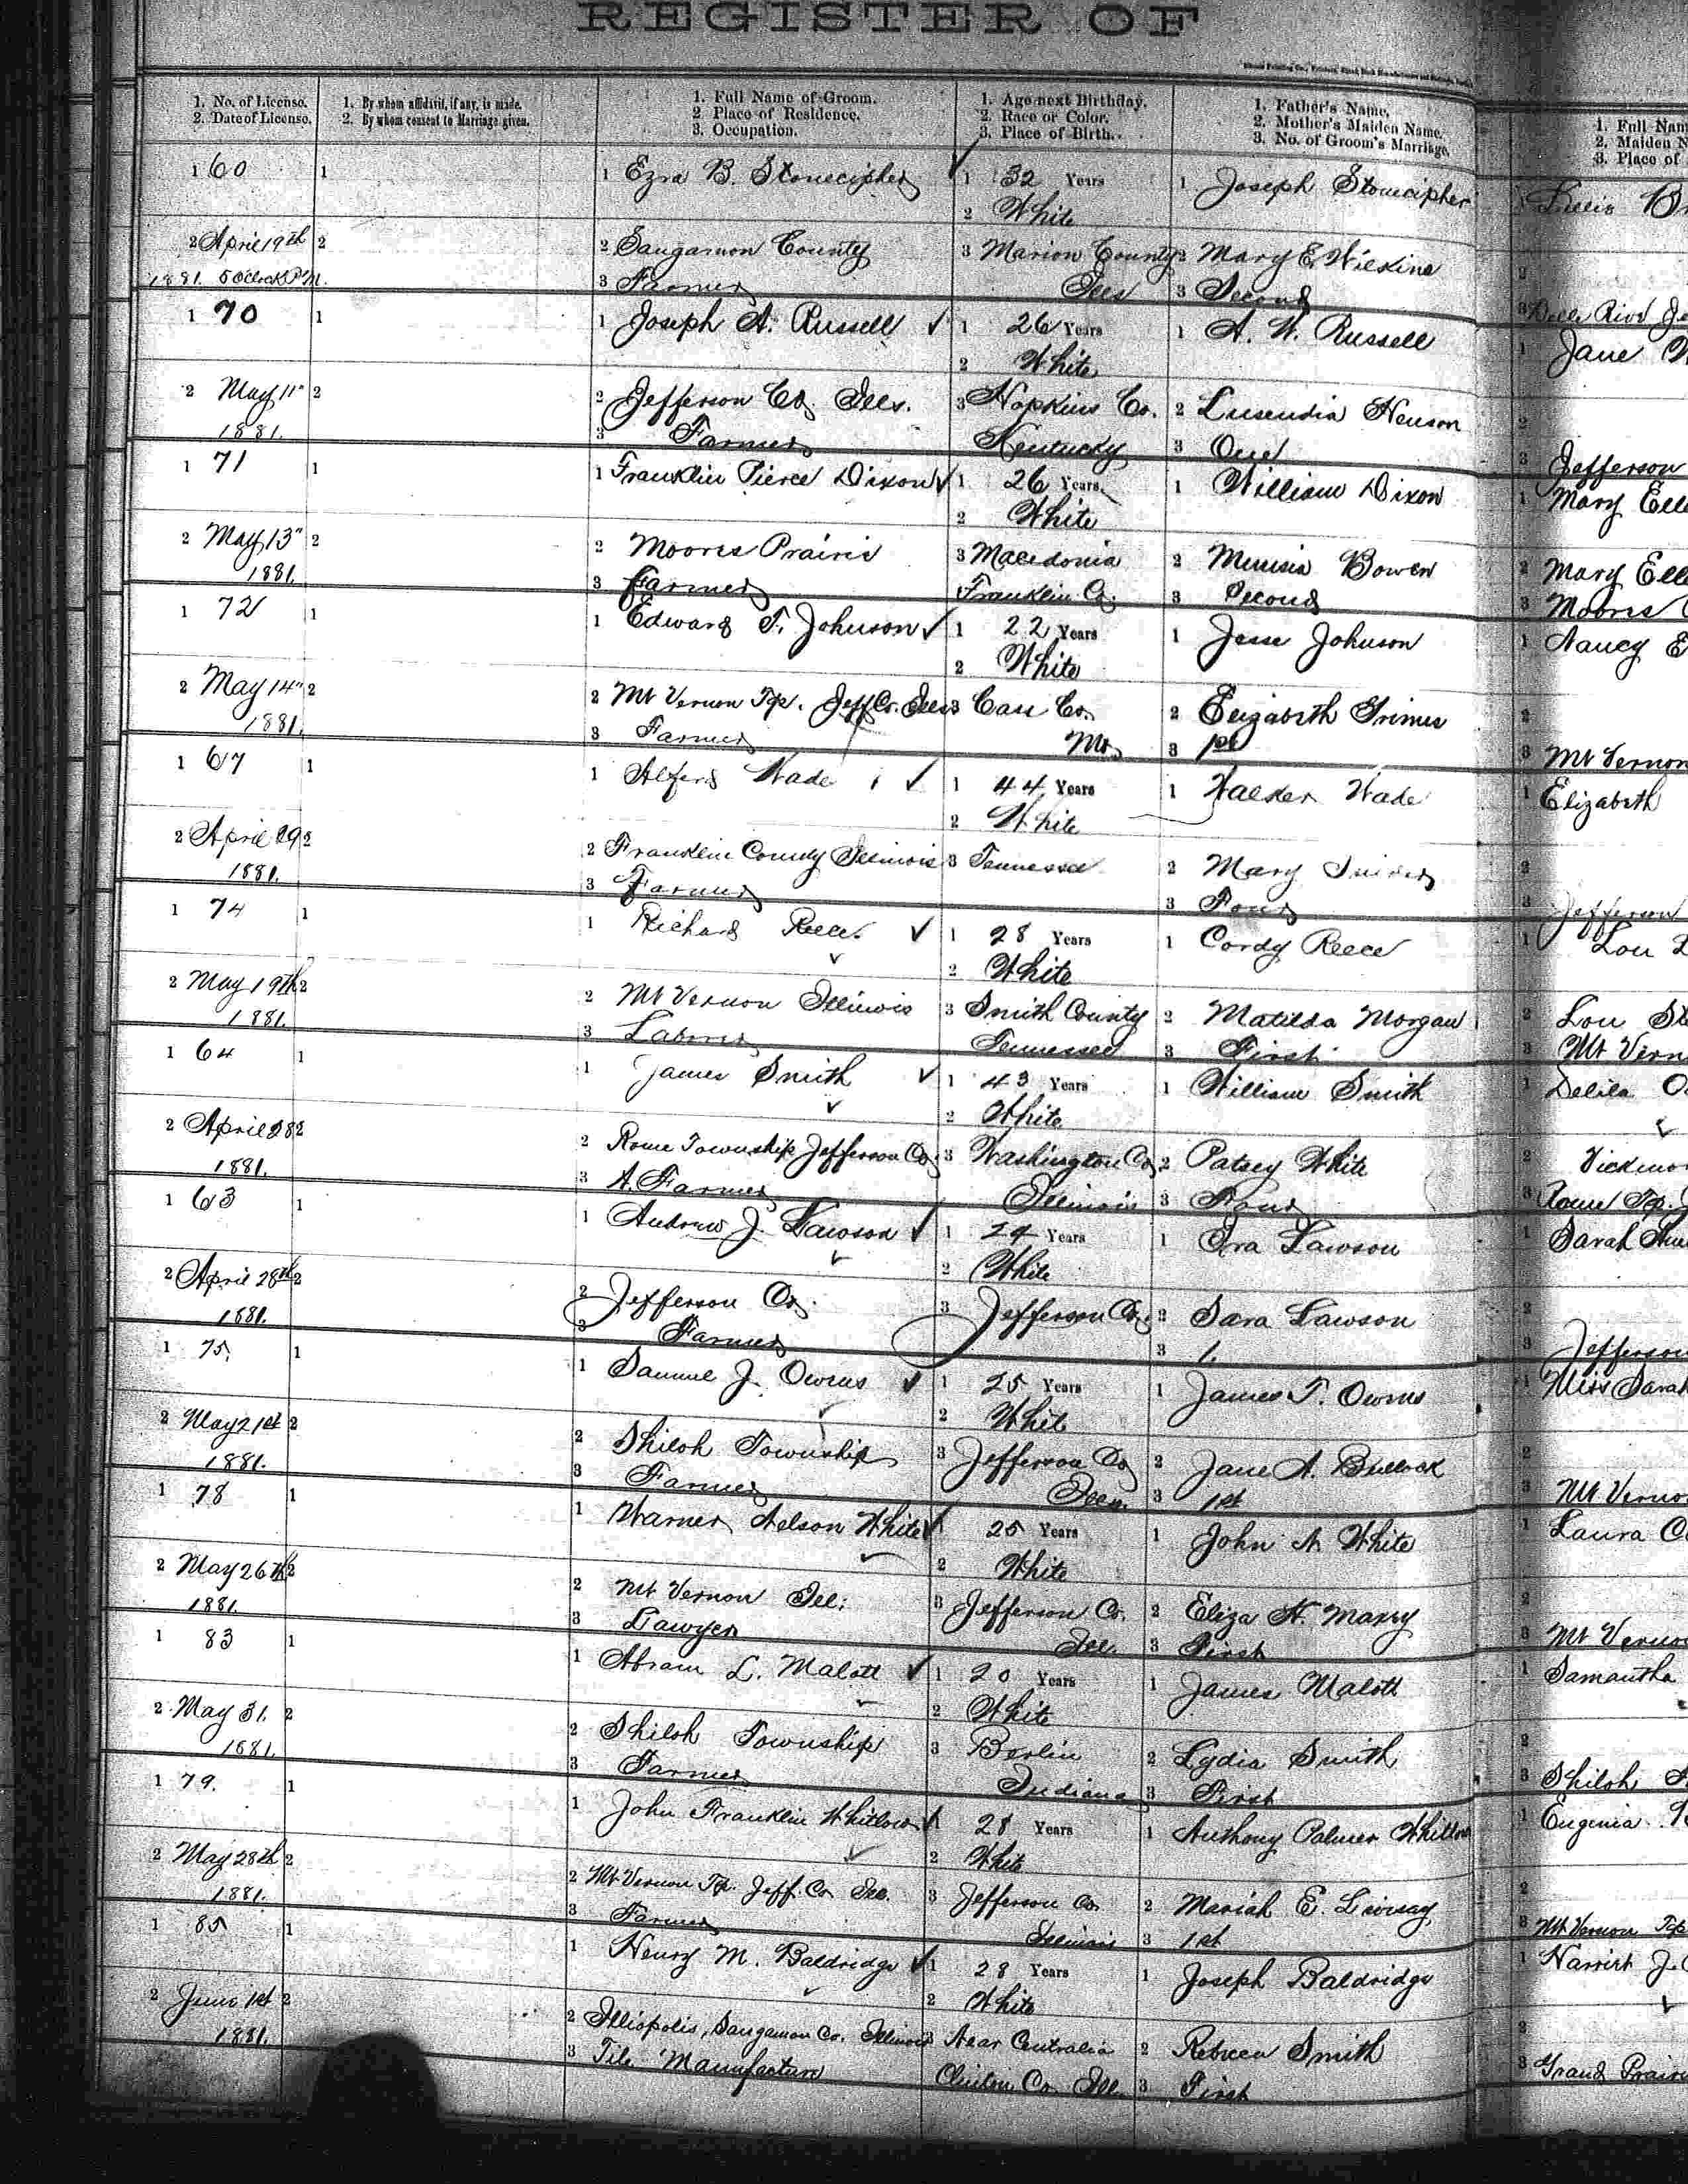 REGISTER OF
1. No. of License. 1. By whom affidavit, if any, is made. 1. Full Name of Groom. 1. Age next Birthday. 1. Father's Name. 1. Full Nam
2. Date of License. 2. By whom consent to Marriage given. 2. Place of Residence. 2. Race or Color. 2. Mother's Maiden Name. 2. Maiden N
3. Occupation. 3. Place of Birth. 3. No. of Groom's Marriage. 3. Place of
1 60 1 1 Ezra B. Stonecipher 1 32 Years 1 Joseph Stonecipher
2 White
2 April 19th 2 2 Sangamon County 3 Marion County 2 Mary E. Wilkins 2
1881. 5 Oclock P.M. 3 Farmer Ills 3 Second 3 Belle Rive Je
1 70 1 1 Joseph A. Russell 1 26 Years 1 A. W. Russell 1 Jane
2 White
2 May 11" 2 2 Jefferson Co. Ills. 3 Hopkins Co. 2 Lusendia Henson 2
1881. 3 Farmer Kentucky 3 One 3 Jefferson
1 71 1 1 Franklin Pierce Dixon 1 26 Years 1 William Dixon 1 Mary Elle
2 White
2 May 13" 2 2 Moores Prairie 3 Macedonia 2 Bowen 2 Mary Elle
1881. 3 Farmer Franklin Co. 3 Second 3 Moores
1 72 1 1 Edward T. Johnson 1 22 Years 1 Jesse Johnson 1 Nancy E
2 White
2 May 14" 2 2 Mt Vernon Tp. Jeff Co. Ills 3 Cass Co. 2 Elizabeth Grimes 2
1881. 3 Farmer Mo. 3 1st 3 Mt Vernon
1 67 1 1 Alferd Wade 1 44 Years 1 Walker Wade 1 Elizabeth
2 White
2 April 29 2 2 Franklin County Illinois 3 Tennessee 2 Mary 2
1881. 3 Farmer 3 Four 3 Jefferson
1 74 1 1 Richard Reece 1 28 Years 1 Cordy Reece 1 Lou
2 White
2 May 19th 2 2 Mt Vernon Illinois 3 Smith County 2 Matilda Morgan 2 Lou St
1881. 3 Laborer Tennessee 3 First 3 Mt Vern
1 64 1 1 James Smith 1 43 Years 1 William Smith 1 Delila
2 White
2 April 28 2 2 Rome Township Jefferson Co. 3 Washington Co. 2 Patsey White 2
1881. 3 A. Farmer Illinois 3 Four 3 Rome Tp.
1 63 1 1 Andrew J. Lawson 1 24 Years 1 Ira Lawson 1 Sarah
2 White
2 April 28th 2 2 Jefferson Co. 3 Jefferson Co. 2 Sara Lawson 2
1881. 3 Farmer 3 1. 3 Jefferson
1 75. 1 1 Samuel J. Owens 1 25 Years 1 James T. Owens 1 Miss Sarah
2 White
2 May 21st 2 2 Shiloh Township 3 Jefferson Co 2 Jane A. Bullock 2
1881. 3 Farmer Ills. 3 1st 3 Mt Verno
1 78 1 1 Warner Nelson White 1 25 Years 1 John N. White 1 Laura C
2 White
2 May 26th 2 2 Mt Vernon Ill: 3 Jefferson Co. 2 Eliza H. Maxey 2
1881. 3 Lawyer Ill. 3 First 3 Mt Verno
1 83 1 1 Abram L. Malott 1 20 Years 1 James Malott 1 Samantha
2 White
2 May 31. 2 2 Shiloh Township 3 Berlin 2 Lydia Smith 2
1881. 3 Farmer Indiana 3 First 3 Shiloh
1 79. 1 1 John Franklin Whitlow 1 28 Years 1 Anthony Palmer Whitlow 1 Eugenia
2 White
2 May 28th 2 2 Mt Vernon Tp. Jeff. Co Ills. 3 Jefferson Co. 2 Mariah E. Livesay 2
1881. 3 Farmer Illinois 3 1st 3 Mt Vernon Tp
1 85 1 1 Henry M. Baldridge 1 28 Years 1 Joseph Baldridge 1 Harriet J.
2 White
2 June 1st 2 2 Illiopolis, Sangamon Co. Illinois 3 Near Centralia 2 Rebecca Smith 2
1881. 3 Tile Manufacture Clinton Co. Ill. 3 First 3 Grand Prairi